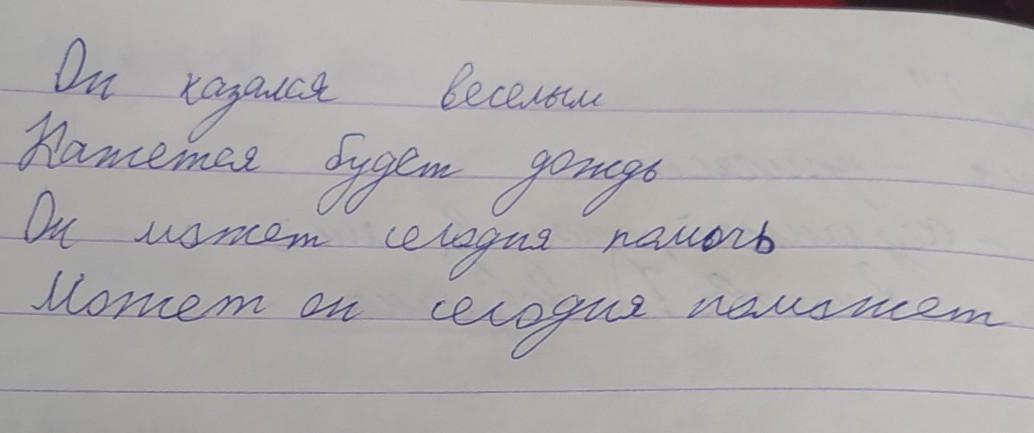 Он казался веселым
Кажется будет дождь
Он может сегодня помочь
Может он сегодня поможет